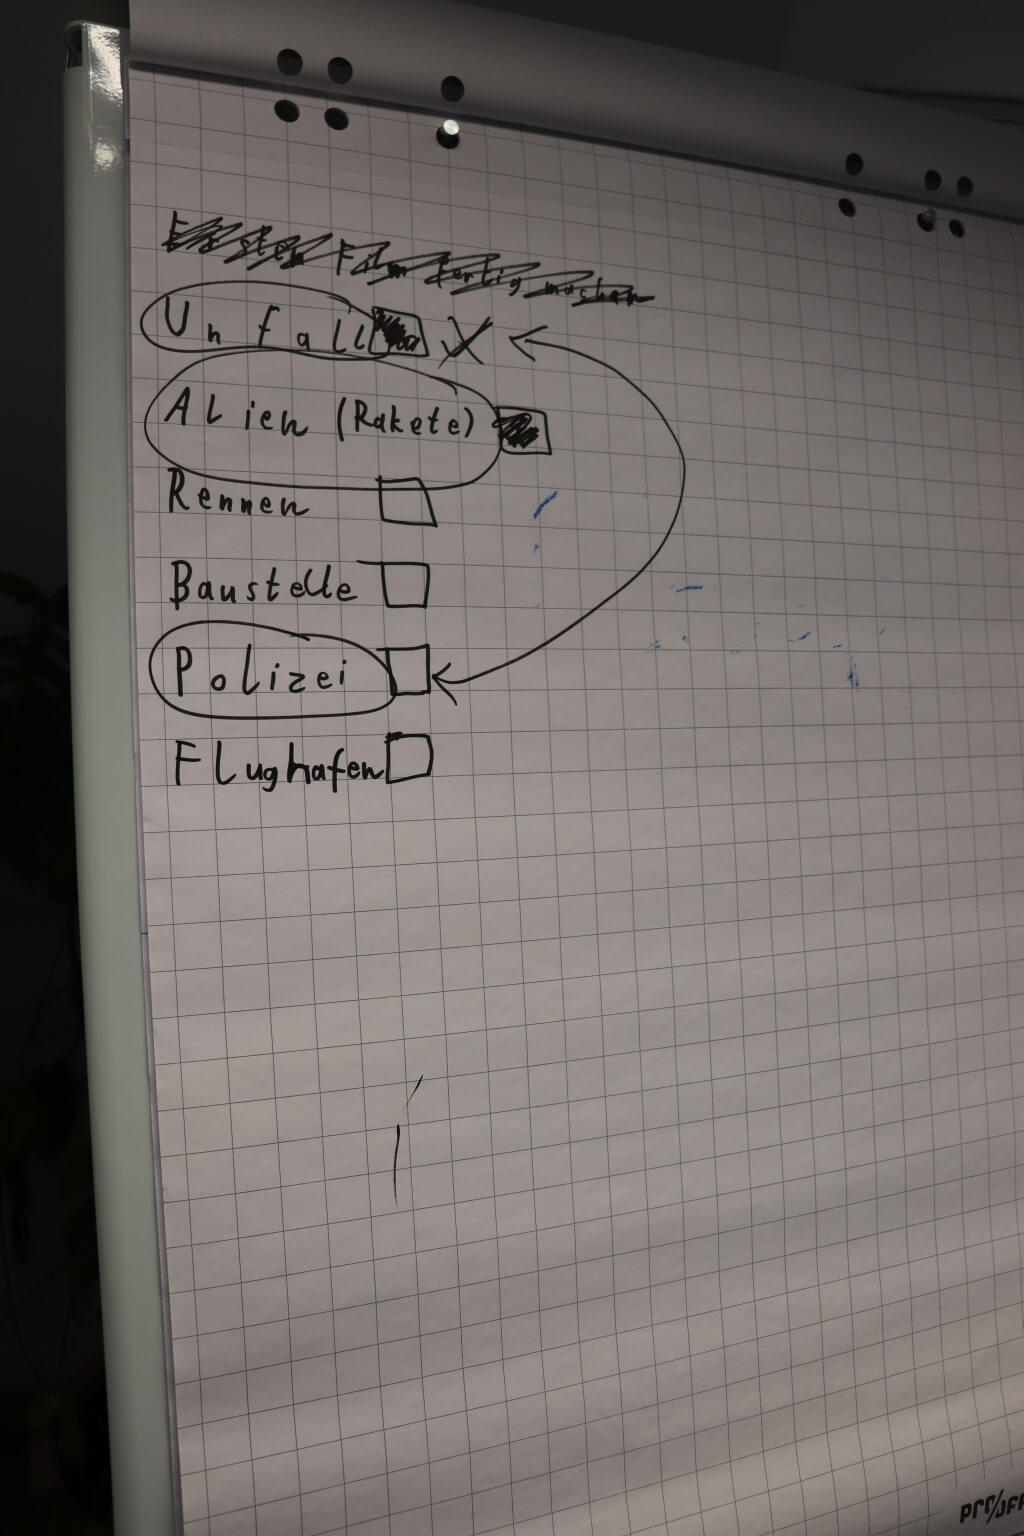 Ersten Film fertig mashen
Unfall
Alien (Rakete)
Rennen
Baustelle
Polizei
Flughafen